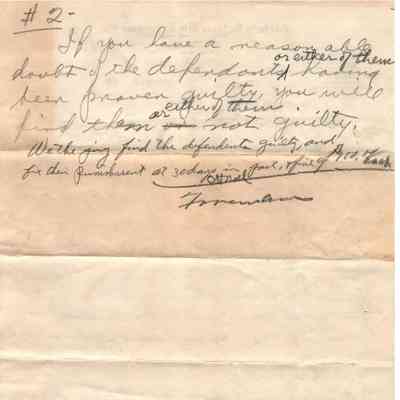 #2-
If you have a reasonable
or either of them
doubt of the defendants having
been proven guilty, you will
or either of them
find them or not guilty.
We the jury find the defendants guilty and
fix their punishment at 30 days in jail, & fine of $100. Each
Foreman